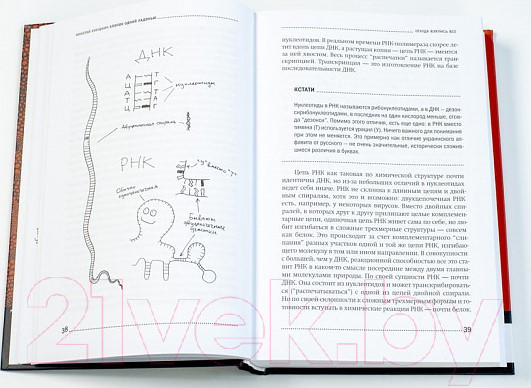 ХЛОПОК ОДНОЙ ЛАДОНЬЮ
ДНК
А Т
Т А
Ц Г
Ц Г
нуклеотиды
двойная спираль
РНК
"У" вместо "Т"
Обычно одноцепочечная
Бывают двухцепочечные
38
ОТКУДА ВЗЯЛОСЬ ВСЁ
нуклеотидов. В реальном времени РНК-полимераза скорее ле-
тит вдоль цепи ДНК, а растущая копия — цепь РНК — тянется
за ней хвостом. Весь процесс "распечатки" называется тран-
скрипцией. Транскрипция — это изготовление РНК на базе
последовательности ДНК.
КСТАТИ
Нуклеотиды в РНК называются рибонуклеотидами, а в ДНК — дезок-
сирибонуклеотидами, в последних на один кислород меньше, от-
сюда "дезокси". Помимо этого отличия, есть еще одно: в РНК вместо
тимина (Т) используется урацил (У). Ничего важного для понимания
при этом не меняется. Это примерно как отличие украинского ал-
фавита от русского — не очень значительные, исторически сложив-
шиеся различия в буквах.
Цепь РНК как таковая по химической структуре почти
идентична ДНК, но из-за небольших отличий в нуклеотидах
ведет себя иначе. РНК не склонна к длинным цепям и двой-
ным спиралям, хотя это и возможно: двухцепочечная РНК
есть, например, у некоторых вирусов. Вместо двойных спи-
ралей, в которых друг к другу прилипают целые комплемен-
тарные цепи, одиночная цепь РНК живет сама по себе, но лю-
бит изгибаться в сложные трехмерные структуры — совсем
как белок. Это происходит за счет комплементарного "сли-
пания" разных участков одной и той же цепи РНК, изгибаю-
щего молекулу в том или ином направлении. В совокупности
с большей, чем у ДНК, реакционной способностью все это ста-
вит РНК в каком-то смысле посередине между двумя главны-
ми молекулами природы. По своей сути РНК — почти
ДНК. Она состоит из нуклеотидов и может транскрибировать-
ся ("распечатываться") с одной из цепей двойной спирали.
Но по своей склонности к сложным трехмерным формам и готовно-
сти вступать в химические реакции РНК — почти белок.
39
21vek.by